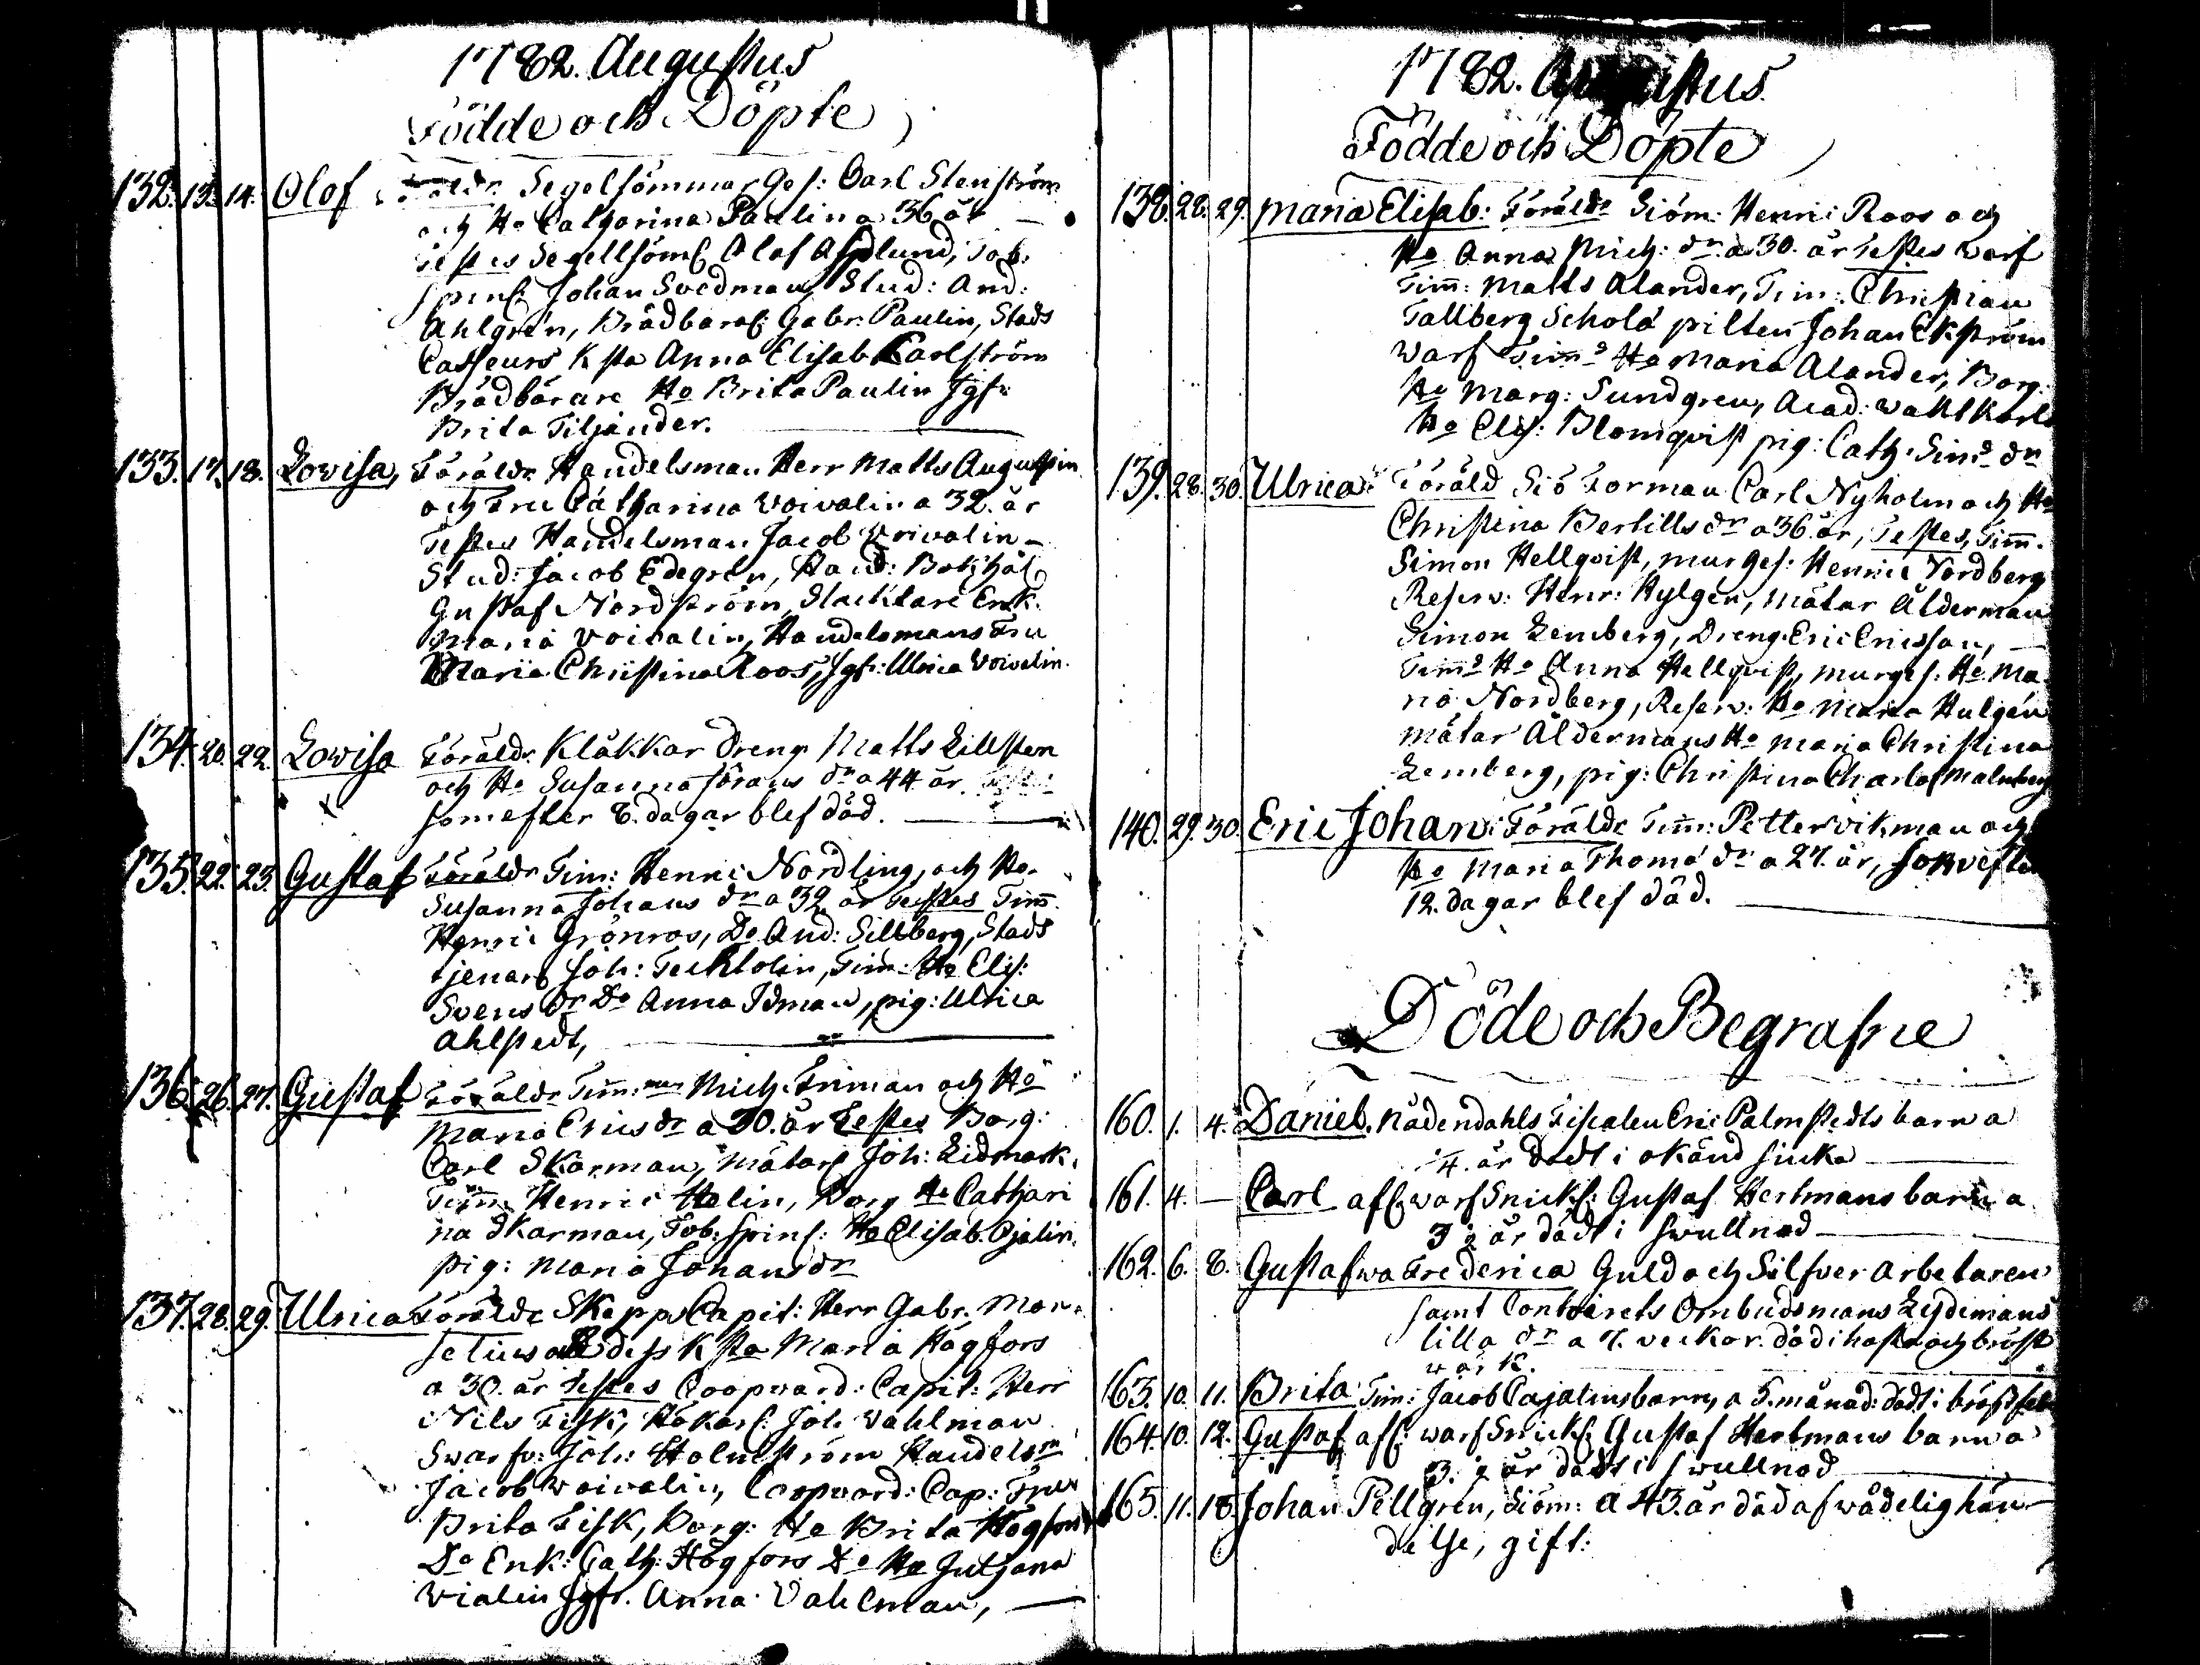 1782. Augustus
Födde och Döpte
132. 13. 14. Olof Föräldr. Segelsömmar Ges: Carl Stenström
och Ho Catharina Paulin a 36 år
Testes Segellsöm: Olof Asplund, Tob:
spins: Johan Svedman, Stud: And:
Ahlgrén, Brädbarar: Gabr: Paulin, Stads
Casseurs K sta Anna Elisab Carlström
Brädbärare Ho Brita Paulin Jgfr:
Brita Tiljander.
133. 17. 18. Lovisa, Föräldr. Handelsman Herr Matts Augustin
och Fru Catharina Voivalin a 32. år
Testes Handelsman Jacob Voivalin
Stud: Jacob Edegrén, Hand: Bokhål
Gustaf Nordström, Slacktare Enk:
Maria Voivalin, Handelsmans Fru
Maria Christina Roos, Jgfr: Ulrica Voivalin.
134. 20. 22. Lovisa Föräldr. Klåkkar Dreng Matts Lillsten
och Ho Susanna Jörans dr a 44 år.
som efter 8. dagar blef död.
135. 22. 23. Gustaf Föräldr Tim: Henric Nordling, och Ho
Susanna Johans dr a 32 år Testes Timm.
Henric Grönros, Do And: Sillberg, Stads
tjenare Joh: Techtolin, Tim: Ho Elis:
Svens dr Do Anna Idman, pig: Ulrica
Ahlstedt,
136. 26. 27. Gustaf Föräldr Timm: Mich. Friman och Ho
Maria Erics dr a 30. år Testes Borg:
Carl Skarman, mätare Joh: Lidmark,
Timm: Henric Helin, Borg Ho Cathari
na Skarman, Tob: spins: Ho Elisab. Cajalin,
pig: Maria Johans dr
137. 28. 29. Ulrica Förälde Skepps Capit: Herr Gabr. Mar-
selius och dess K sta Maria Högfors
a 30. år Testes Coopvard: Capit: Herr
Nils Fisk, Håkar: Joh: Vahlman
Swarfv: Joh: Holmström Handelsm
Jacob Woivalin, Coopvard: Cap: Fru
Brita Fisk, Borg: Ho Brita Högfors
Do Enk: Cath: Högfors Do Ho Juliana
Wialin Jgfr. Anna Vahlman,
1782. Augustus
Födde och Döpte
138. 28. 29. Maria Elisab: Föräldr Siöm: Henric Roos och
Ho Anna Mich: dr. a 30. år Testes Warf
Timm: Matts Alander, Tim: Christian
Tallberg Schola pilten Johan Ekström
Warf Tims Ho Maria Alander, Borg:
Ho Marg: Sundgren, Acad: Wakt Karls
Ho Elis: Blomqvist pig: Cath: Sims dr
139. 28. 30. Ulrica: Föräld Siö Forman Carl Nyholm och Ho
Christina Bertills dr a 36. år, Testes, Timm.
Simon Hellqvist, mur Ges: Henric Nordberg
Reserv: Henr: Hylgén, mätar Ålderman
Simon Lemberg, Dreng Eric Ericsson,
Tims Ho Anna Hellqvist, murges: Ho Ma
ria Nordberg, Reserv: Ho Maria Hulgén
mätar Åldermans Ho Maria Christina
Lemberg, pig: Christina Charlot Malmberg
140. 29. 30. Eric Johan: Förälde Timm: Petter Vikman och
Ho Maria Thoma dr a 27. år, som efter
12. dagar blef död.
Döde och Begrafne
160. 1. 4. Daniel, Nådendahls Fiscalen Eric Palmstedts barn a
1/4. år Dödt i okänd siuka
161. 4. — Carl aff: warf Snick: Gustaf Hertmans barn a
3 1/2 år dödt i swullnad
162. 6. 8. Gustafwa Frederica Guld och Silfver arbetaren
samt Contoirets Ombudsmans Lydemans
lilla dr a 7. veckor. död i hosta och bröst
wärk.
163. 10. 11. Brita Tim: Jacob Cajalins barn, a 5. månad: dödt i bröstfeb
164. 10. 12. Gustaf aff: warf Snick: Gustaf Hertmans barn a
3. 1/2 år dödt i swullnad
165. 11. 18. Johan Pellgrén, Siöm: a 43. år död af wådelig hän-
delse, gift: